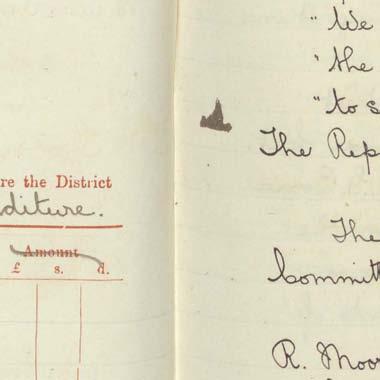 re the District
diture.
Amount
£ s. d.
" We
" the
" to s
The Rep
The
Committ
R. Moor